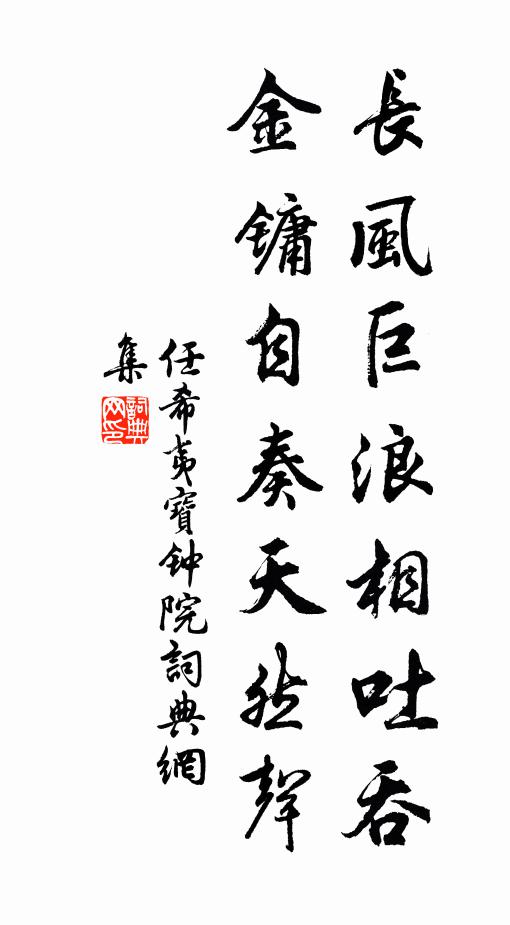 長風巨浪相吐吞
金鏞自奏天然聲
任希夷寶钟院詞典網
集
詞典
网印